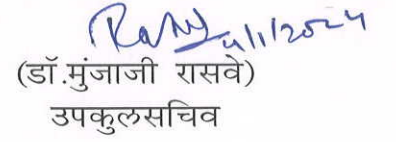 4/1/2024
(डॉ.मुंजाजी रासवे)
उपकुलसचिव